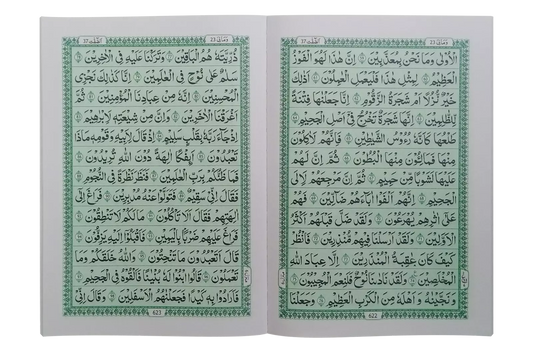 ومالى 23
الصّٰفّٰت 37
الْاُوْلٰى وَمَا نَحْنُ بِمُعَذَّبِيْنَ ۞ اِنَّ هٰذَا لَهُوَ الْفَوْزُ
الْعَظِيْمُ ۞ لِمِثْلِ هٰذَا فَلْيَعْمَلِ الْعٰمِلُوْنَ ۞ اَذٰلِكَ
خَيْرٌ نُّزُلًا اَمْ شَجَرَةُ الزَّقُّوْمِ ۞ اِنَّا جَعَلْنٰهَا فِتْنَةً
لِّلظّٰلِمِيْنَ ۞ اِنَّهَا شَجَرَةٌ تَخْرُجُ فِيْٓ اَصْلِ الْجَحِيْمِ ۞
طَلْعُهَا كَاَنَّهٗ رُءُوْسُ الشَّيٰطِيْنِ ۞ فَاِنَّهُمْ لَاٰكِلُوْنَ
مِنْهَا فَمَالِئُوْنَ مِنْهَا الْبُطُوْنَ ۞ ثُمَّ اِنَّ لَهُمْ
عَلَيْهَا لَشَوْبًا مِّنْ حَمِيْمٍ ۞ ثُمَّ اِنَّ مَرْجِعَهُمْ لَاِ۟لَى
الْجَحِيْمِ ۞ اِنَّهُمْ اَلْفَوْا اٰبَآءَهُمْ ضَآلِّيْنَ ۞ فَهُمْ
عَلٰٓى اٰثٰرِهِمْ يُهْرَعُوْنَ ۞ وَلَقَدْ ضَلَّ قَبْلَهُمْ اَكْثَرُ
الْاَوَّلِيْنَ ۞ وَلَقَدْ اَرْسَلْنَا فِيْهِمْ مُّنْذِرِيْنَ ۞ فَانْظُرْ
كَيْفَ كَانَ عَاقِبَةُ الْمُنْذَرِيْنَ ۞ اِلَّا عِبَادَ اللّٰهِ
الْمُخْلَصِيْنَ ۞ وَلَقَدْ نَادٰىنَا نُوْحٌ فَلَنِعْمَ الْمُجِيْبُوْنَ ۞
وَ نَجَّيْنٰهُ وَ اَهْلَهٗ مِنَ الْكَرْبِ الْعَظِيْمِ ۞ وَجَعَلْنَا
622
ومالى 23
الصّٰفّٰت 37
ذُرِّيَّتَهٗ هُمُ الْبٰقِيْنَ ۞ وَتَرَكْنَا عَلَيْهِ فِي الْاٰخِرِيْنَ ۞
سَلٰمٌ عَلٰى نُوْحٍ فِي الْعٰلَمِيْنَ ۞ اِنَّا كَذٰلِكَ نَجْزِى
الْمُحْسِنِيْنَ ۞ اِنَّهٗ مِنْ عِبَادِنَا الْمُؤْمِنِيْنَ ۞ ثُمَّ
اَغْرَقْنَا الْاٰخَرِيْنَ ۞ وَاِنَّ مِنْ شِيْعَتِهٖ لَاِبْرٰهِيْمَ ۞
اِذْ جَآءَ رَبَّهٗ بِقَلْبٍ سَلِيْمٍ ۞ اِذْ قَالَ لِاَبِيْهِ وَقَوْمِهٖ مَاذَا
تَعْبُدُوْنَ ۞ اَئِفْكًا اٰلِهَةً دُوْنَ اللّٰهِ تُرِيْدُوْنَ ۞
فَمَا ظَنُّكُمْ بِرَبِّ الْعٰلَمِيْنَ ۞ فَنَظَرَ نَظْرَةً فِي النُّجُوْمِ ۞
فَقَالَ اِنِّيْ سَقِيْمٌ ۞ فَتَوَلَّوْا عَنْهُ مُدْبِرِيْنَ ۞ فَرَاغَ اِلٰٓى
اٰلِهَتِهِمْ فَقَالَ اَلَا تَاْكُلُوْنَ ۞ مَا لَكُمْ لَا تَنْطِقُوْنَ ۞
فَرَاغَ عَلَيْهِمْ ضَرْبًا بِالْيَمِيْنِ ۞ فَاَقْبَلُوْا اِلَيْهِ يَزِفُّوْنَ ۞
قَالَ اَتَعْبُدُوْنَ مَا تَنْحِتُوْنَ ۞ وَاللّٰهُ خَلَقَكُمْ وَمَا
تَعْمَلُوْنَ ۞ قَالُوا ابْنُوْا لَهٗ بُنْيَانًا فَاَلْقُوْهُ فِي الْجَحِيْمِ ۞
فَاَرَادُوْا بِهٖ كَيْدًا فَجَعَلْنٰهُمُ الْاَسْفَلِيْنَ ۞ وَ قَالَ اِنِّيْ
623